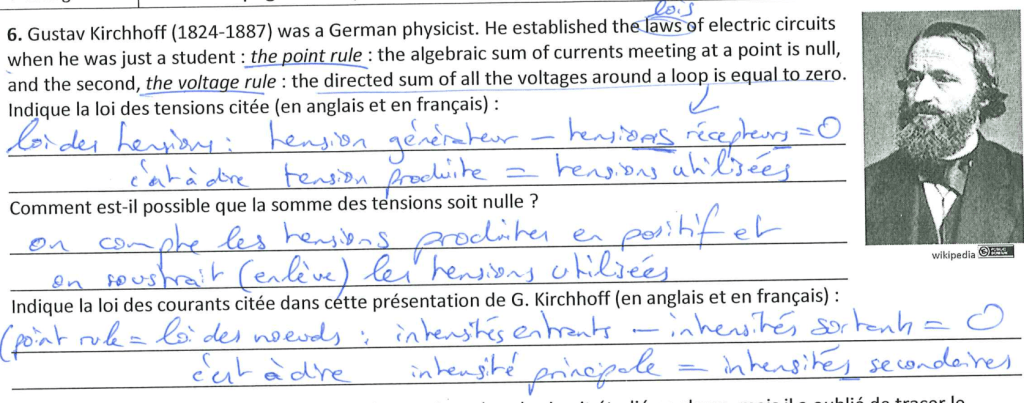 lois
6. Gustav Kirchhoff (1824-1887) was a German physicist. He established the laws of electric circuits
when he was just a student : the point rule : the algebraic sum of currents meeting at a point is null,
and the second, the voltage rule : the directed sum of all the voltages around a loop is equal to zero.
Indique la loi des tensions citée (en anglais et en français) :
loi des tensions : tension générateur – tensions récepteurs = 0
c'est à dire tension produite = tensions utilisées
Comment est-il possible que la somme des tensions soit nulle ?
on compte les tensions produites en positif et
on soustrait (enlève) les tensions utilisées
wikipedia
Indique la loi des courants citée dans cette présentation de G. Kirchhoff (en anglais et en français) :
(point rule = loi des noeuds : intensités entrants – intensités sortants = 0
c'est à dire intensité principale = intensités secondaires